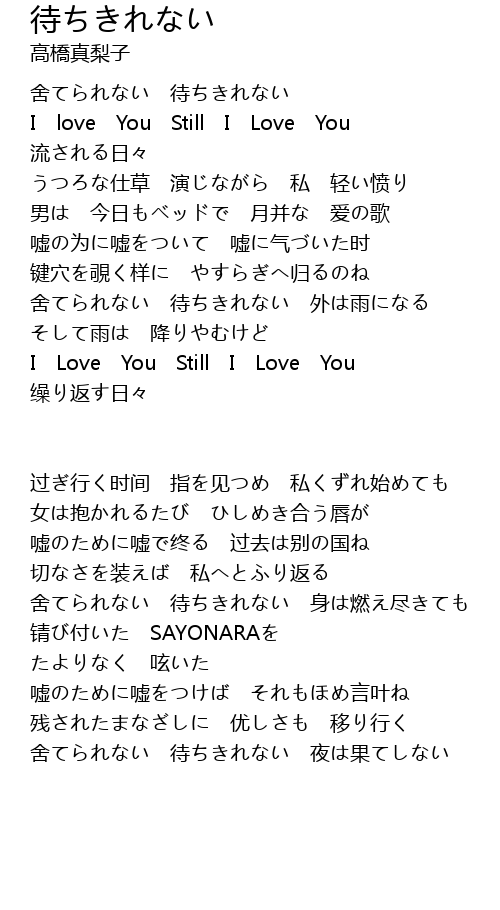 待ちきれない
高橋真梨子
捨てられない　待ちきれない
I　love　You　Still　I　Love　You
流される日々
うつろな仕草　演じながら　私　轻い愤り
男は　今日もベッドで　月并な　爱の歌
嘘の为に嘘をついて　嘘に气づいた时
键穴を覗く様に　やすらぎへ归るのね
舎てられない　待ちきれない　外は雨になる
そして雨は　降りやむけど
I　Love　You　Still　I　Love　You
缲り返す日々
过ぎ行く时间　指を见つめ　私くずれ始めても
女は抱かれるたび　ひしめき合う唇が
嘘のために嘘で终る　过去は别の国ね
切なさを装えば　私へとふり返る
舍てられない　待ちきれない　身は燃え尽きても
锖び付いた　SAYONARAを
たよりなく　呟いた
嘘のために嘘をつけば　それもほめ言叶ね
残されたまなざしに　优しさも　移り行く
舍てられない　待ちきれない　夜は果てしない